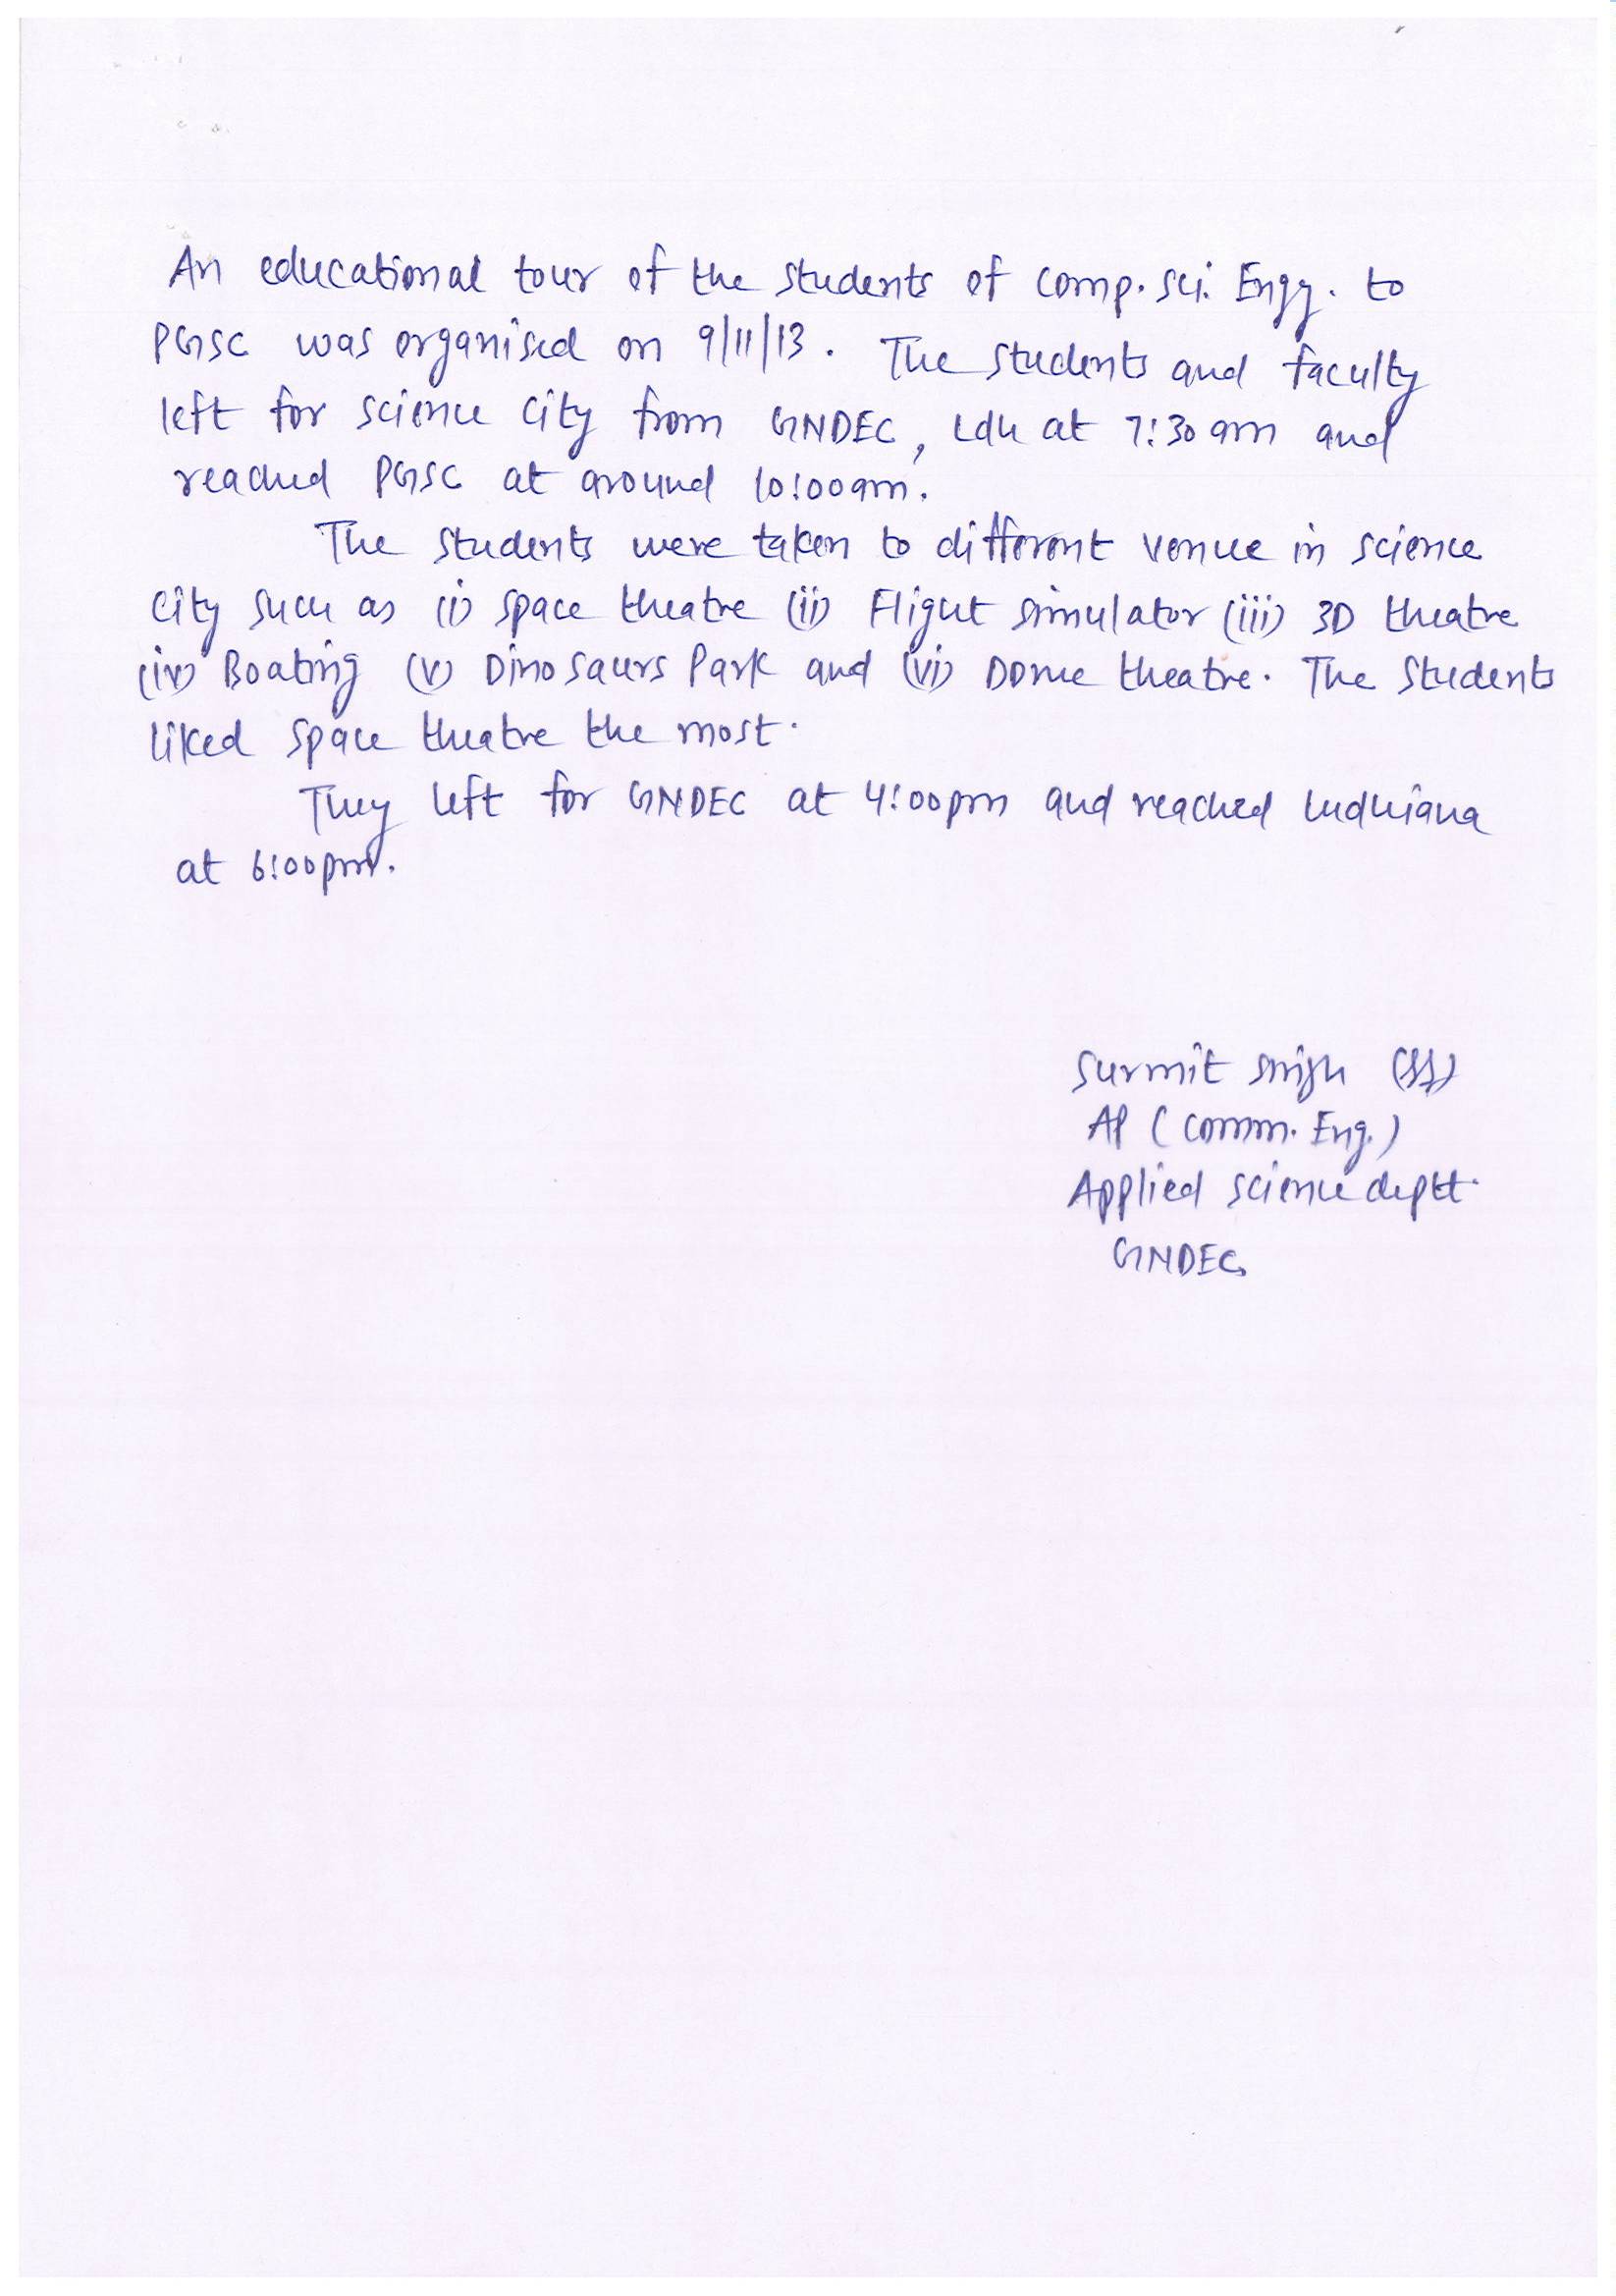 An educational tour of the students of comp. sci. Engg. to
PGSC was organised on 9/11/13. The students and faculty
left for science city from GNDEC, Ldh at 7:30 am and
reached PGSC at around 10:00am.
The students were taken to different venue in science
city such as (i) space theatre (ii) Flight simulator (iii) 3D theatre
(iv) Boating (v) Dinosaurs Park and (vi) Dome theatre. The students
liked space theatre the most.
They left for GNDEC at 4:00pm and reached Ludhiana
at 6:00pm.
Surmit Singh
AP (Comm. Eng.)
Applied science deptt.
GNDEC